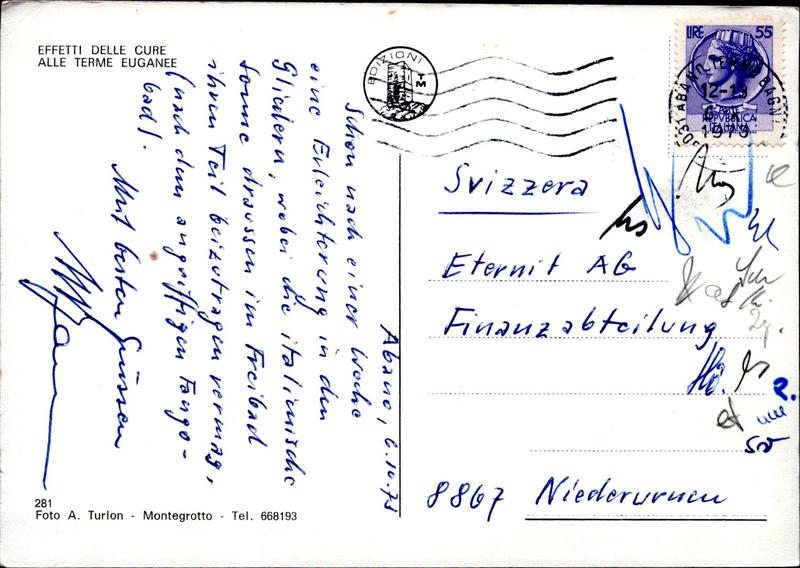 EFFETTI DELLE CURE
ALLE TERME EUGANEE
EDIZIONI
TM
LIRE 55
REPVBBLICA
ITALIANA
ABANO TERME BAGNI
12-13
1973
Abano, 6.10.73
Schon nach einer Woche
eine Erleichterung in den
Gliedern, wobei die italienische
Sonne draussen im Freibad
ihren Teil beizutragen vermag,
(nach dem angriffigen Fango-
bad).
Mit besten Grüssen
Svizzera
Eternit AG
Finanzabteilung
8867 Niederurnen
281
Foto A. Turlon - Montegrotto - Tel. 668193